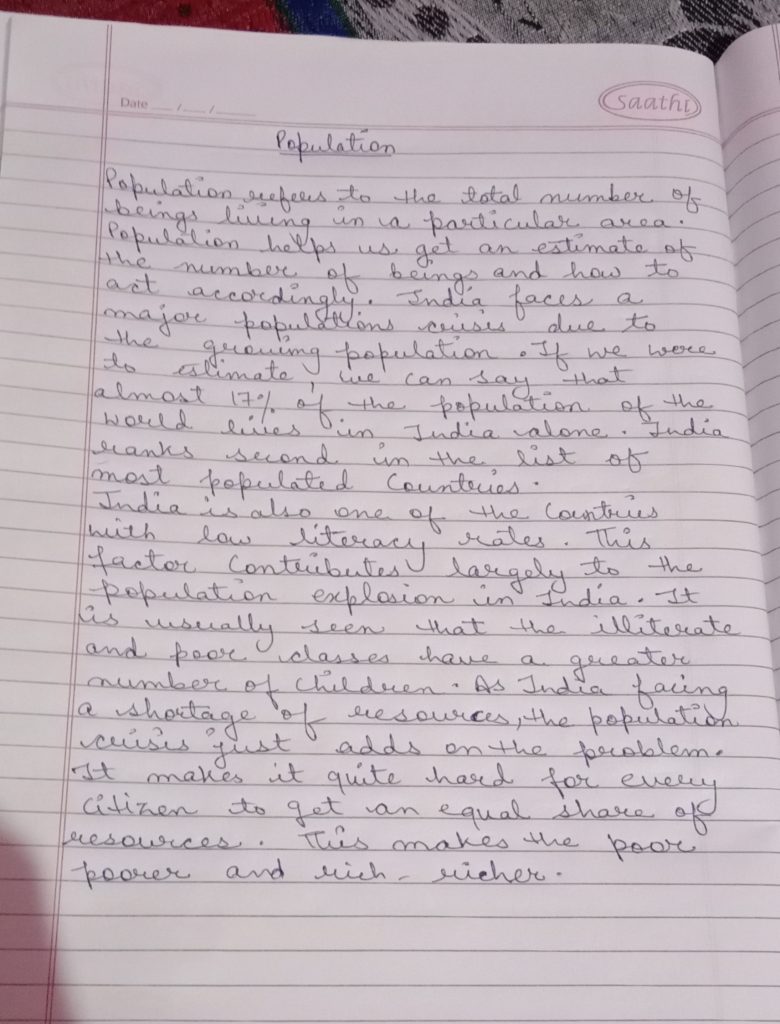 Date __/__/____
Saathi
Population
Population refers to the total number of
beings living in a particular area.
Population helps us get an estimate of
the number of beings and how to
act accordingly. India faces a
major populations crisis due to
the growing population. If we were
to estimate, we can say that
almost 17% of the population of the
world lives in India alone. India
ranks second in the list of
most populated Countries.
India is also one of the Countries
with low literacy rates. This
factor Contributes largely to the
population explosion in India. It
is usually seen that the illiterate
and poor classes have a greater
number of Children. As India facing
a shortage of resources, the population
crisis just adds on the problem.
It makes it quite hard for every
citizen to get an equal share of
resources. This makes the poor
poorer and rich - richer.